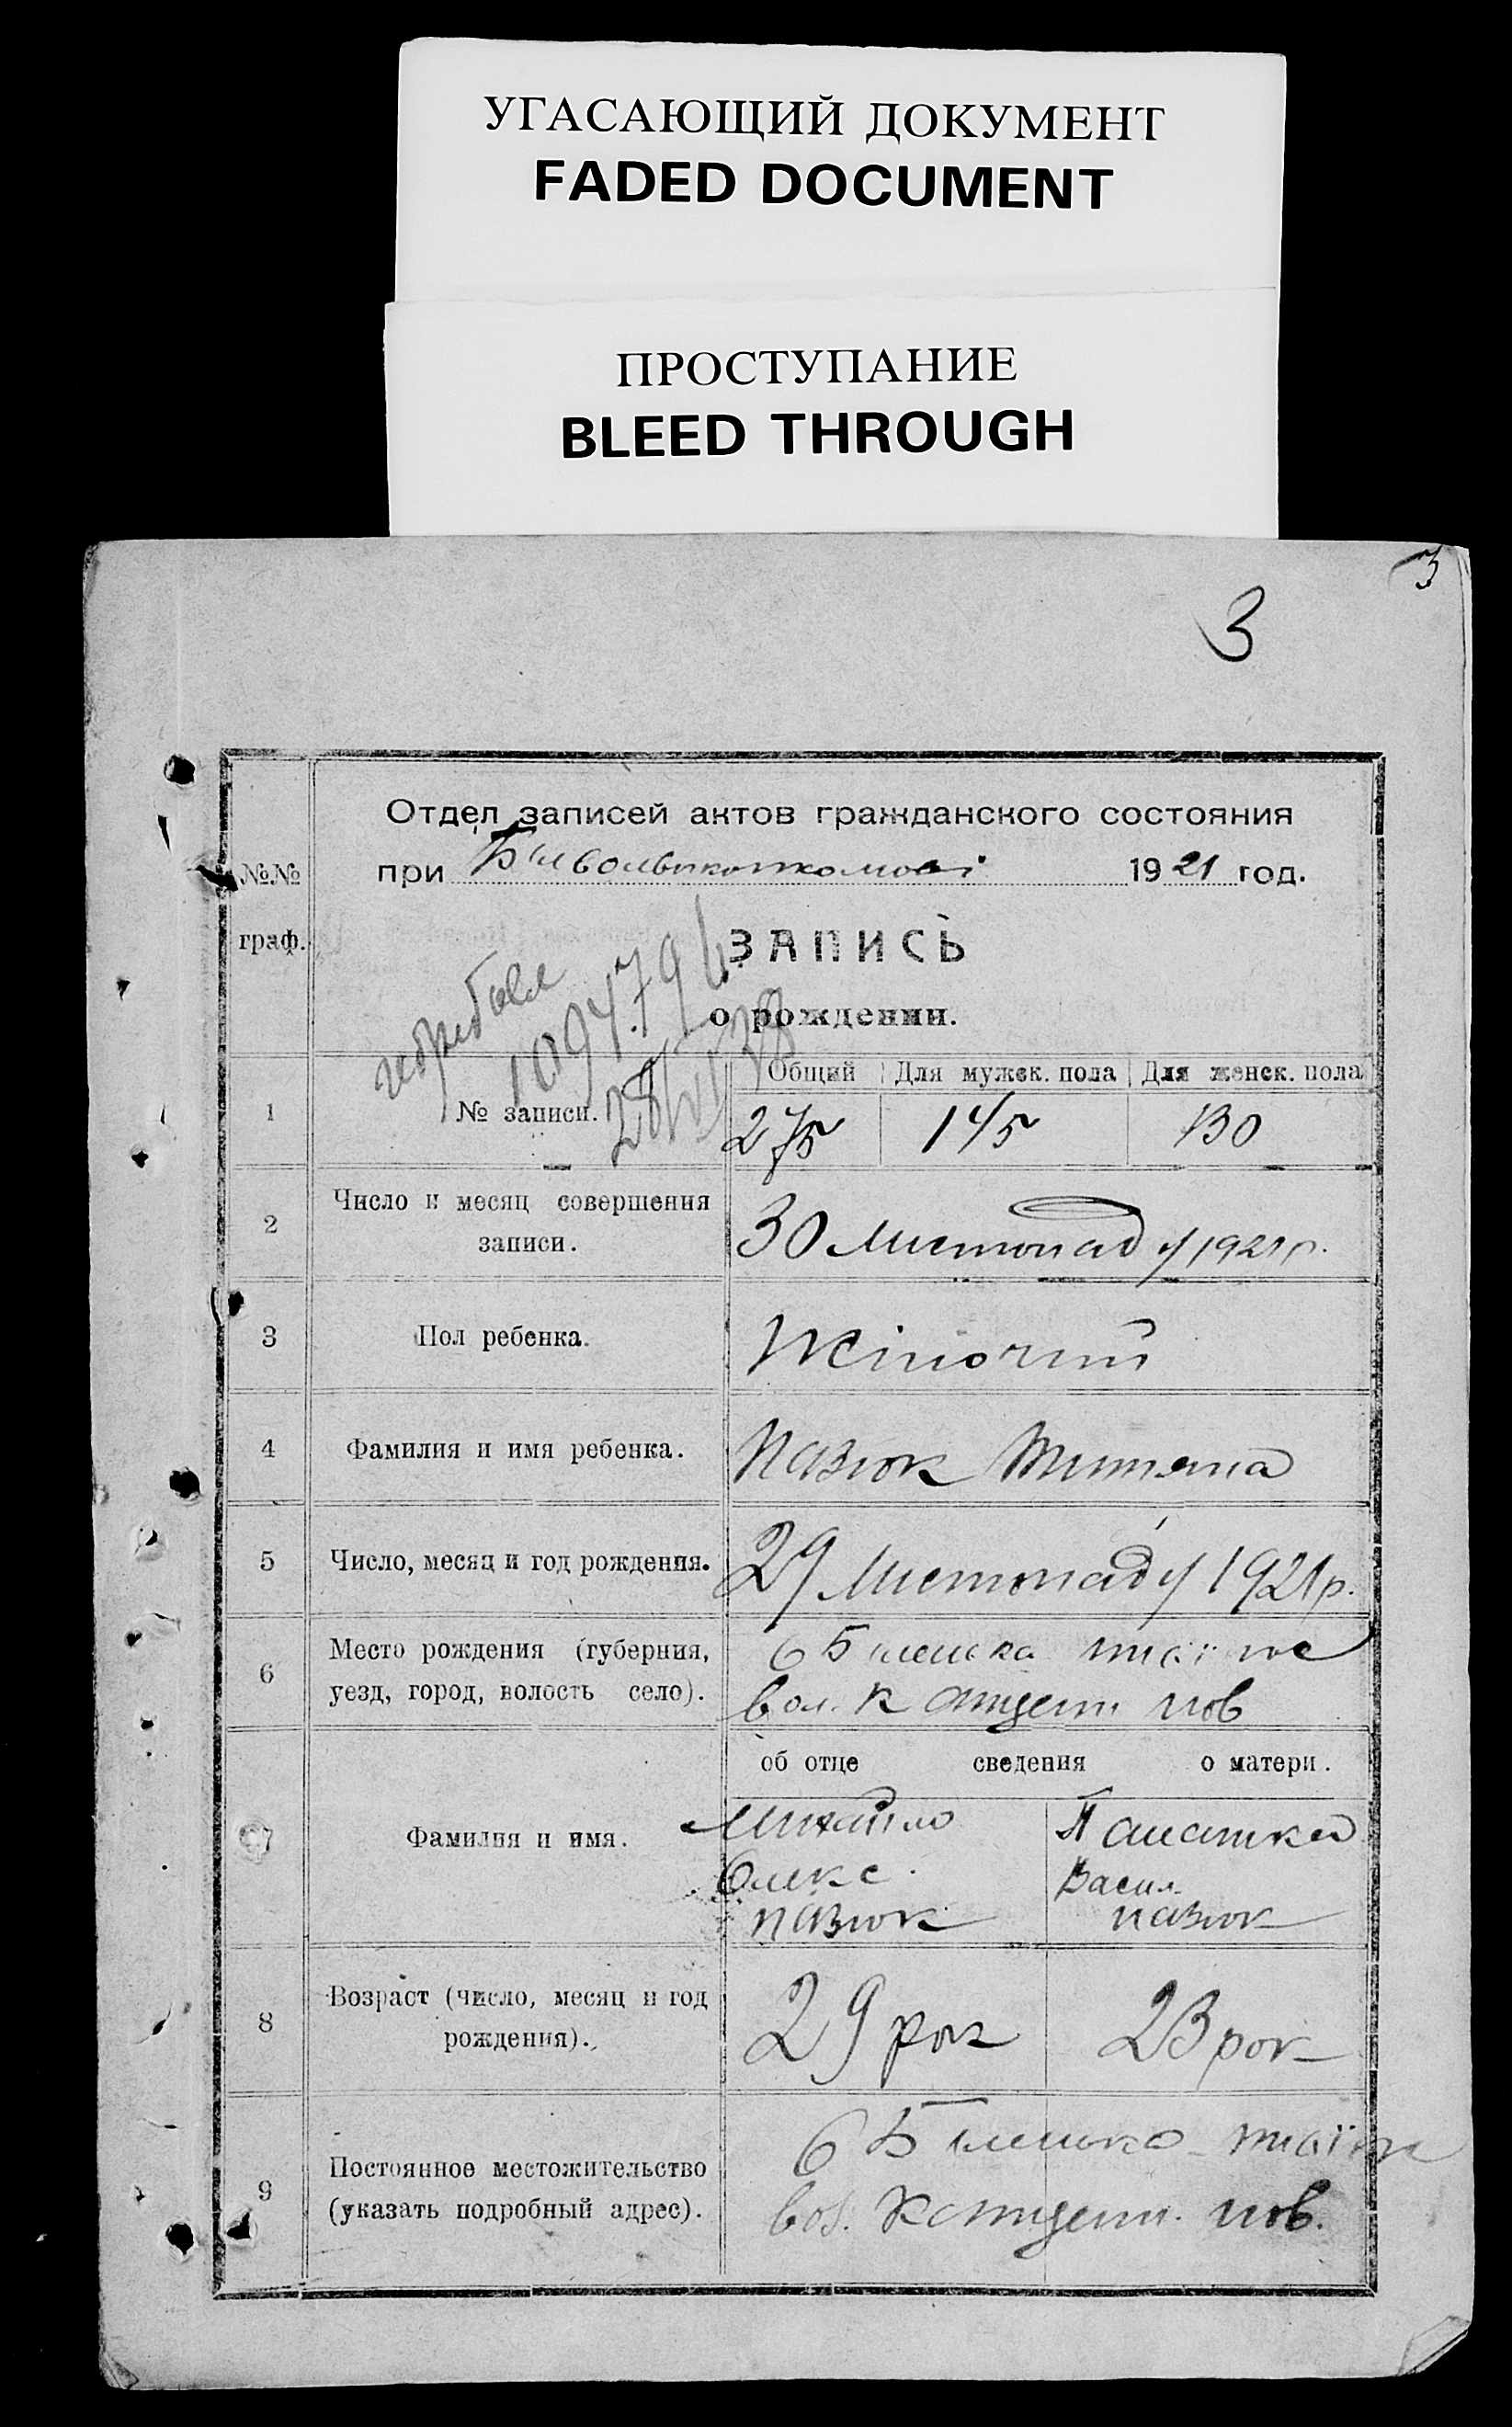 УГАСАЮЩИЙ ДОКУМЕНТ
FADED DOCUMENT
ПРОСТУПАНИЕ
BLEED THROUGH
3
3
Отдел записей актов гражданского состояния
при 1921 год.
№№
граф.
ЗАПИСЬ
о рождении.
Общий Для мужск. пола Для женск. пола
1 № записи. 275 145 130
2 Число и месяц совершения
записи.
30 Листопаду 1921 р.
3 Пол ребенка. Жіночий
4 Фамилия и имя ребенка. Пазюк Титяна
5 Число, месяц и год рождения. 29 Листопаду 1921 р.
6 Место рождения (губерния,
уезд, город, волость село).
вол. пов
об отце сведения о матери.
7 Фамилия и имя.
Михайло Палажка
Олекс. Васил.
Пазюк Пазюк
8 Возраст (число, месяц и год
рождения).
29 рок 23 рок
9 Постоянное местожительство
(указать подробный адрес).
вол. пов.